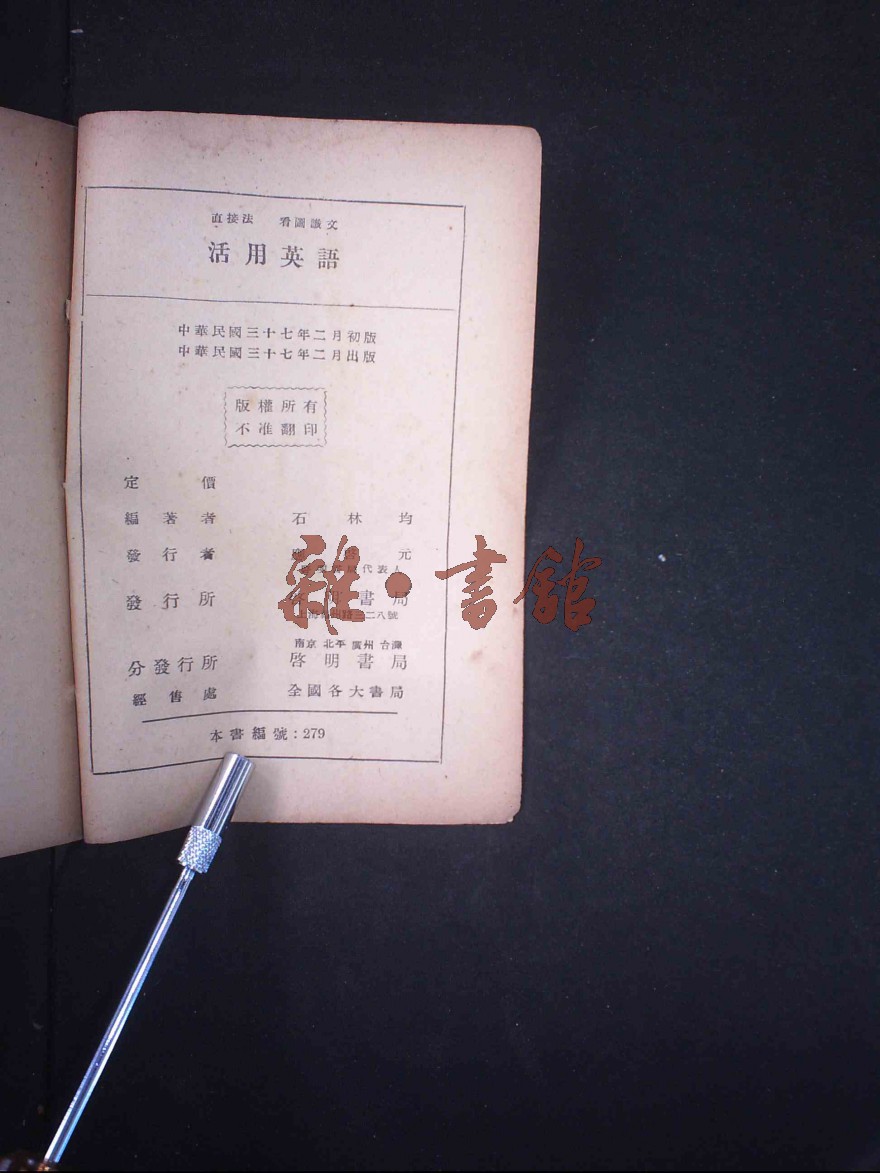 直接法 看圖識文
活用英語
中華民國三十七年二月初版
中華民國三十七年二月出版
版權所有
不准翻印
定價
編著者 石林均
發行者 元
代表人
發行所 書局
上海 路三二八號
南京 北平 廣州 台灣
分發行所 啓明書局
經售處 全國各大書局
本書編號：279
雜·書館